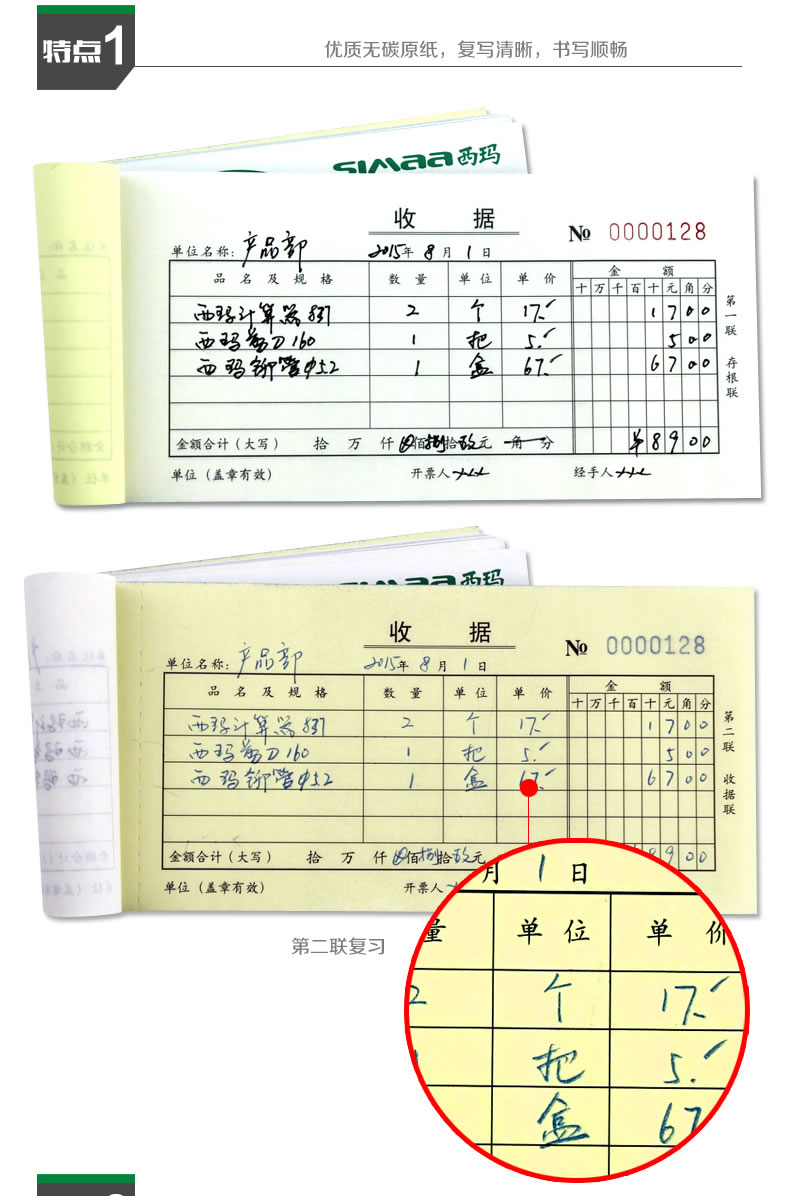 特点1
优质无碳原纸，复写清晰，书写顺畅
SIMAA西玛
收 据
№ 0000128
单位名称: 产品部 2015年 8月 1日
品 名 及 规 格 数 量 单 位 单 价 金 额
十 万 千 百 十 元 角 分
西玛计算器837 2 个 17. 1 7 0 0
西玛剪刀160 1 把 5. 5 0 0
西玛铆管φ5.2 1 盒 67. 6 7 0 0
金额合计（大写） 拾 万 仟 佰捌拾玖元 角 分 ¥ 8 9 0 0
单位（盖章有效） 开票人 经手人
第一联 存根联
SIMAA西玛
收 据
№ 0000128
单位名称: 产品部 2015年 8月 1日
品 名 及 规 格 数 量 单 位 单 价 金 额
十 万 千 百 十 元 角 分
西玛计算器837 2 个 17. 1 7 0 0
西玛剪刀160 1 把 5. 5 0 0
西玛铆管φ5.2 1 盒 67. 6 7 0 0
金额合计（大写） 拾 万 仟 佰捌拾玖元 8 9 0 0
单位（盖章有效） 开票人
第二联 收据联
第二联复习
月 1 日
量 单 位 单 价
2 个 17.
把 5.
盒 67